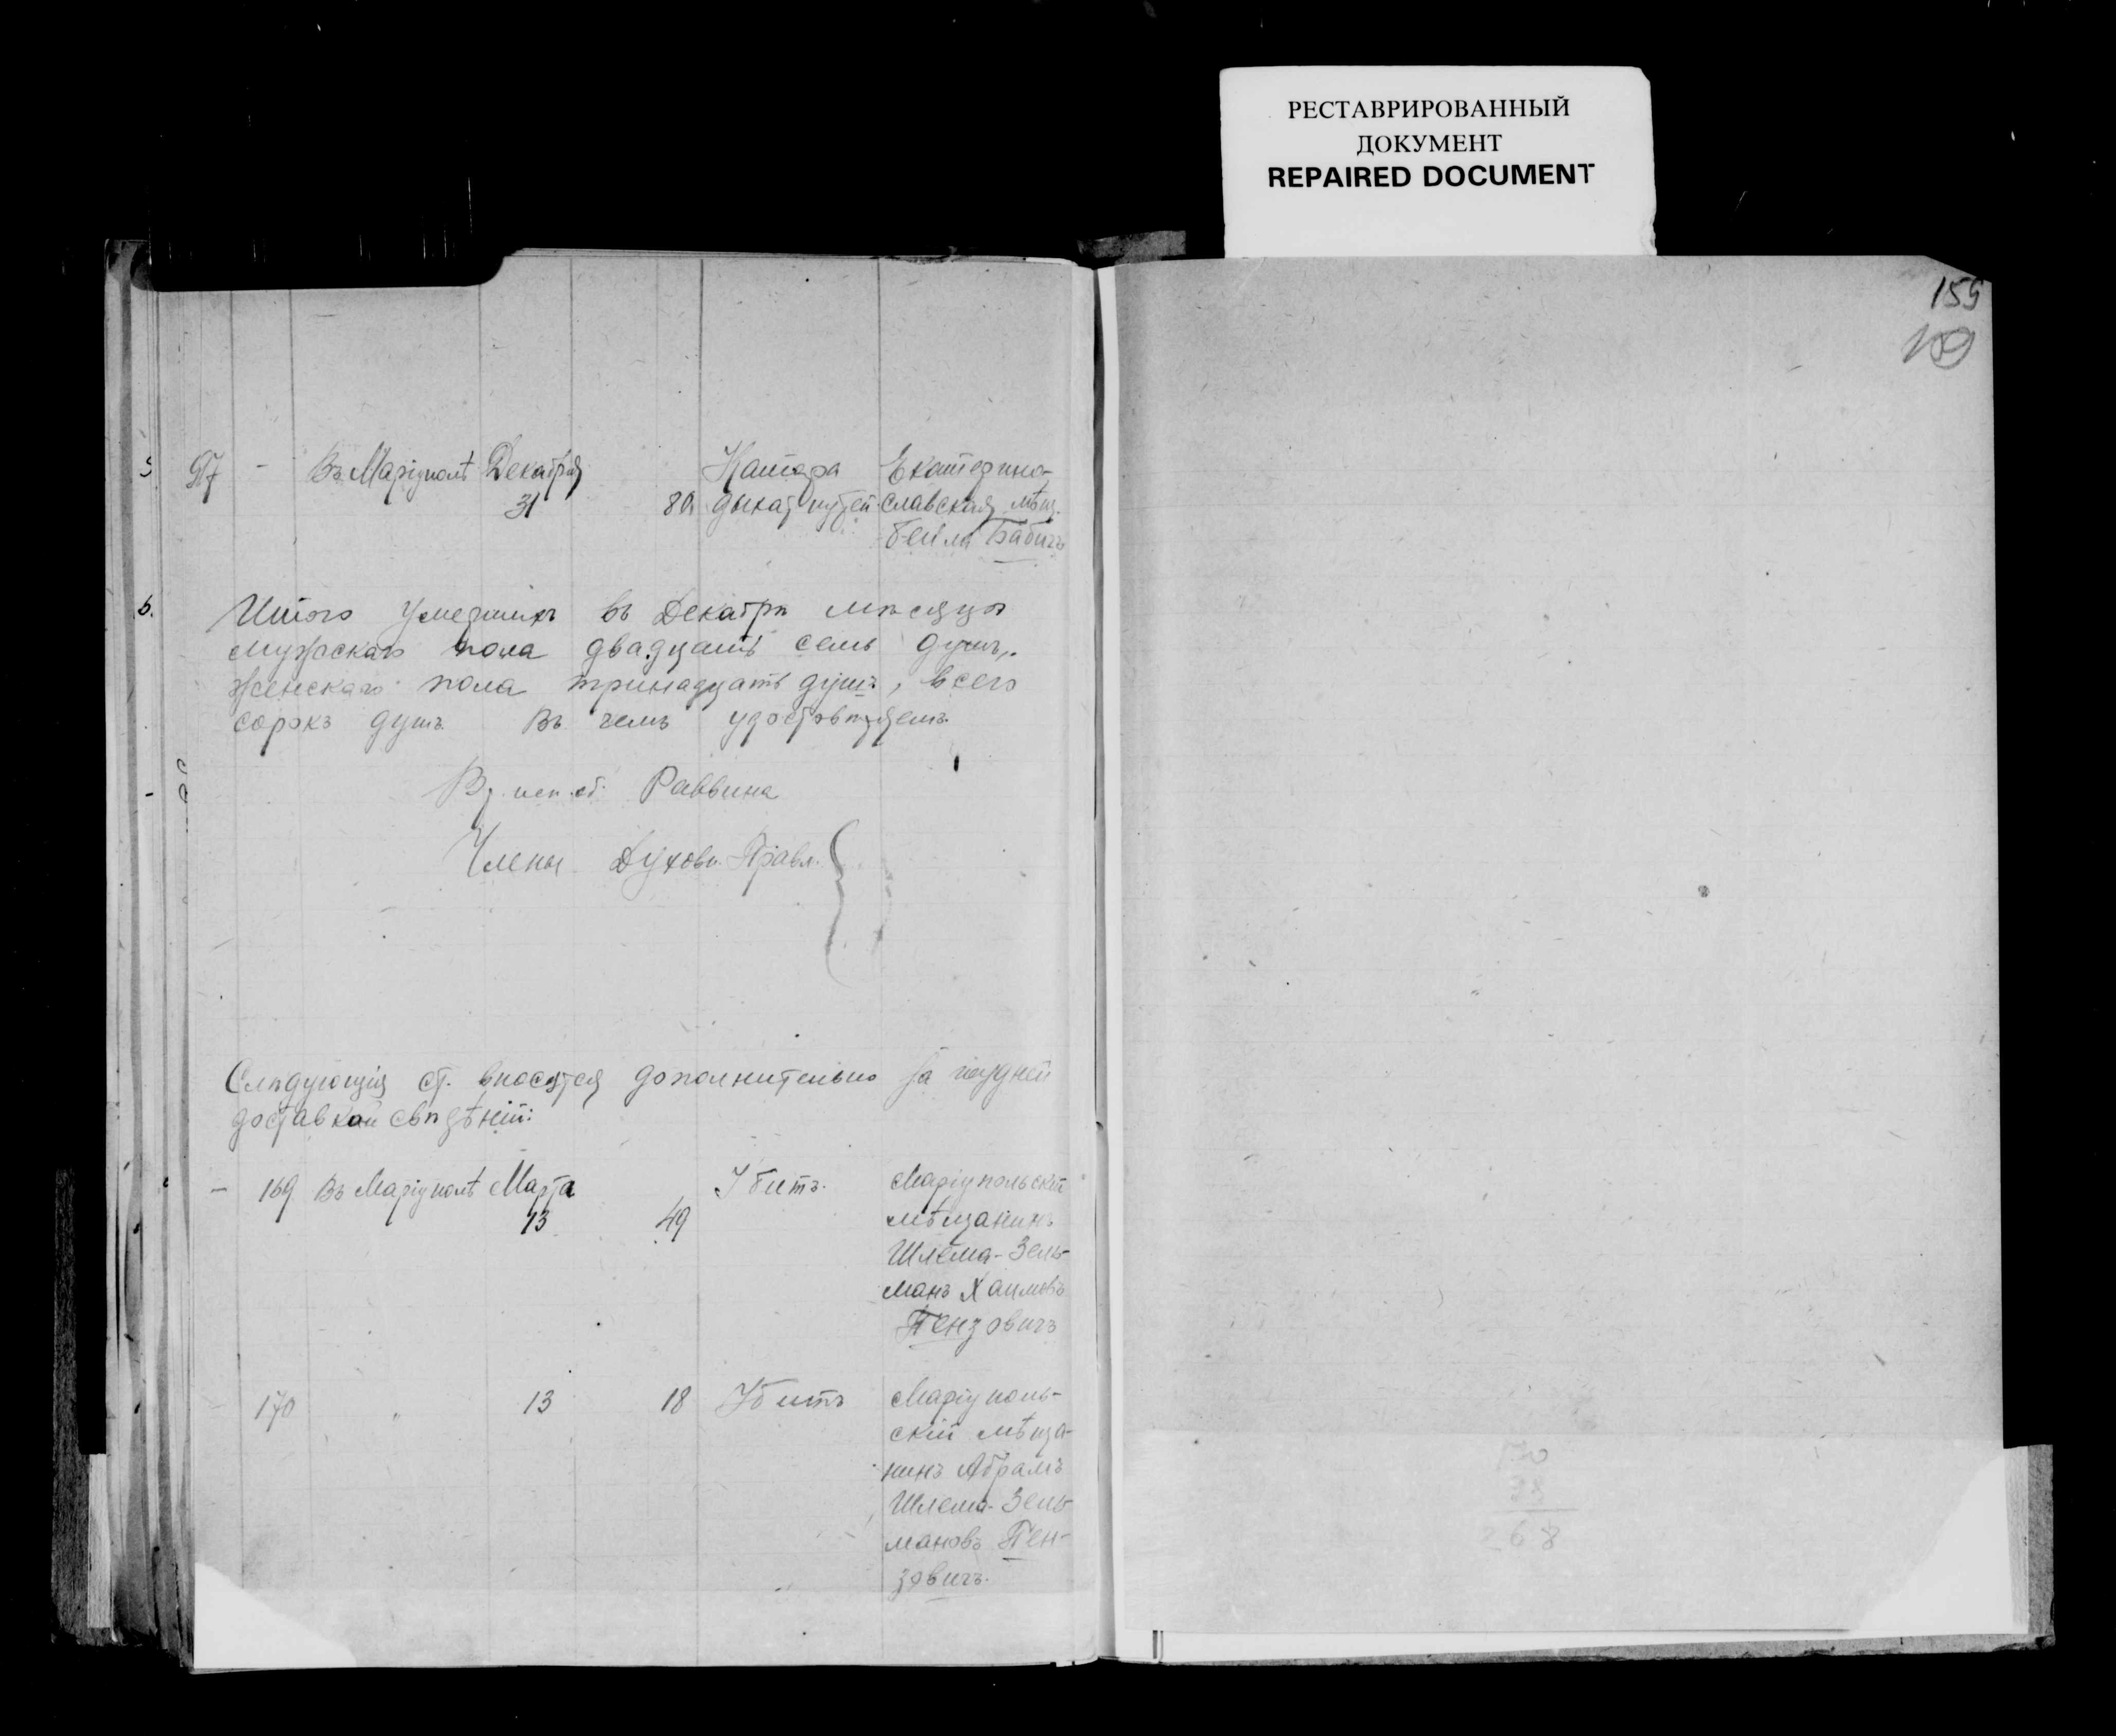 РЕСТАВРИРОВАННЫЙ
ДОКУМЕНТ
REPAIRED DOCUMENT
159
97 - Въ Маріуполѣ Декабря
31 80 Катара дыхат путей
Екатерино-
славская мѣщ.
Бейла Бабичъ
Итого умершихъ въ Декабрѣ мѣсяцѣ
мужскаго пола двадцать семь душъ,
женскаго пола тринадцать душъ, всего
сорокъ душъ. Въ чемъ удостовѣряемъ.
Вр. исп. об. Раввина
Члены Духовн. Правл.
Слѣдующія ст. вносятся дополнительно за
доставкой свѣдѣній:
- 169 Въ Маріуполѣ Марта
13 49 Убитъ.
Маріупольскій
мѣщанинъ
Шлема-Зель-
манъ Хаимовъ
Пензовичъ
170 " 13 18 Убитъ
Маріуполь-
скій мѣща-
нинъ Абрамъ
Шлема-Зель-
мановъ Пен-
зовичъ.